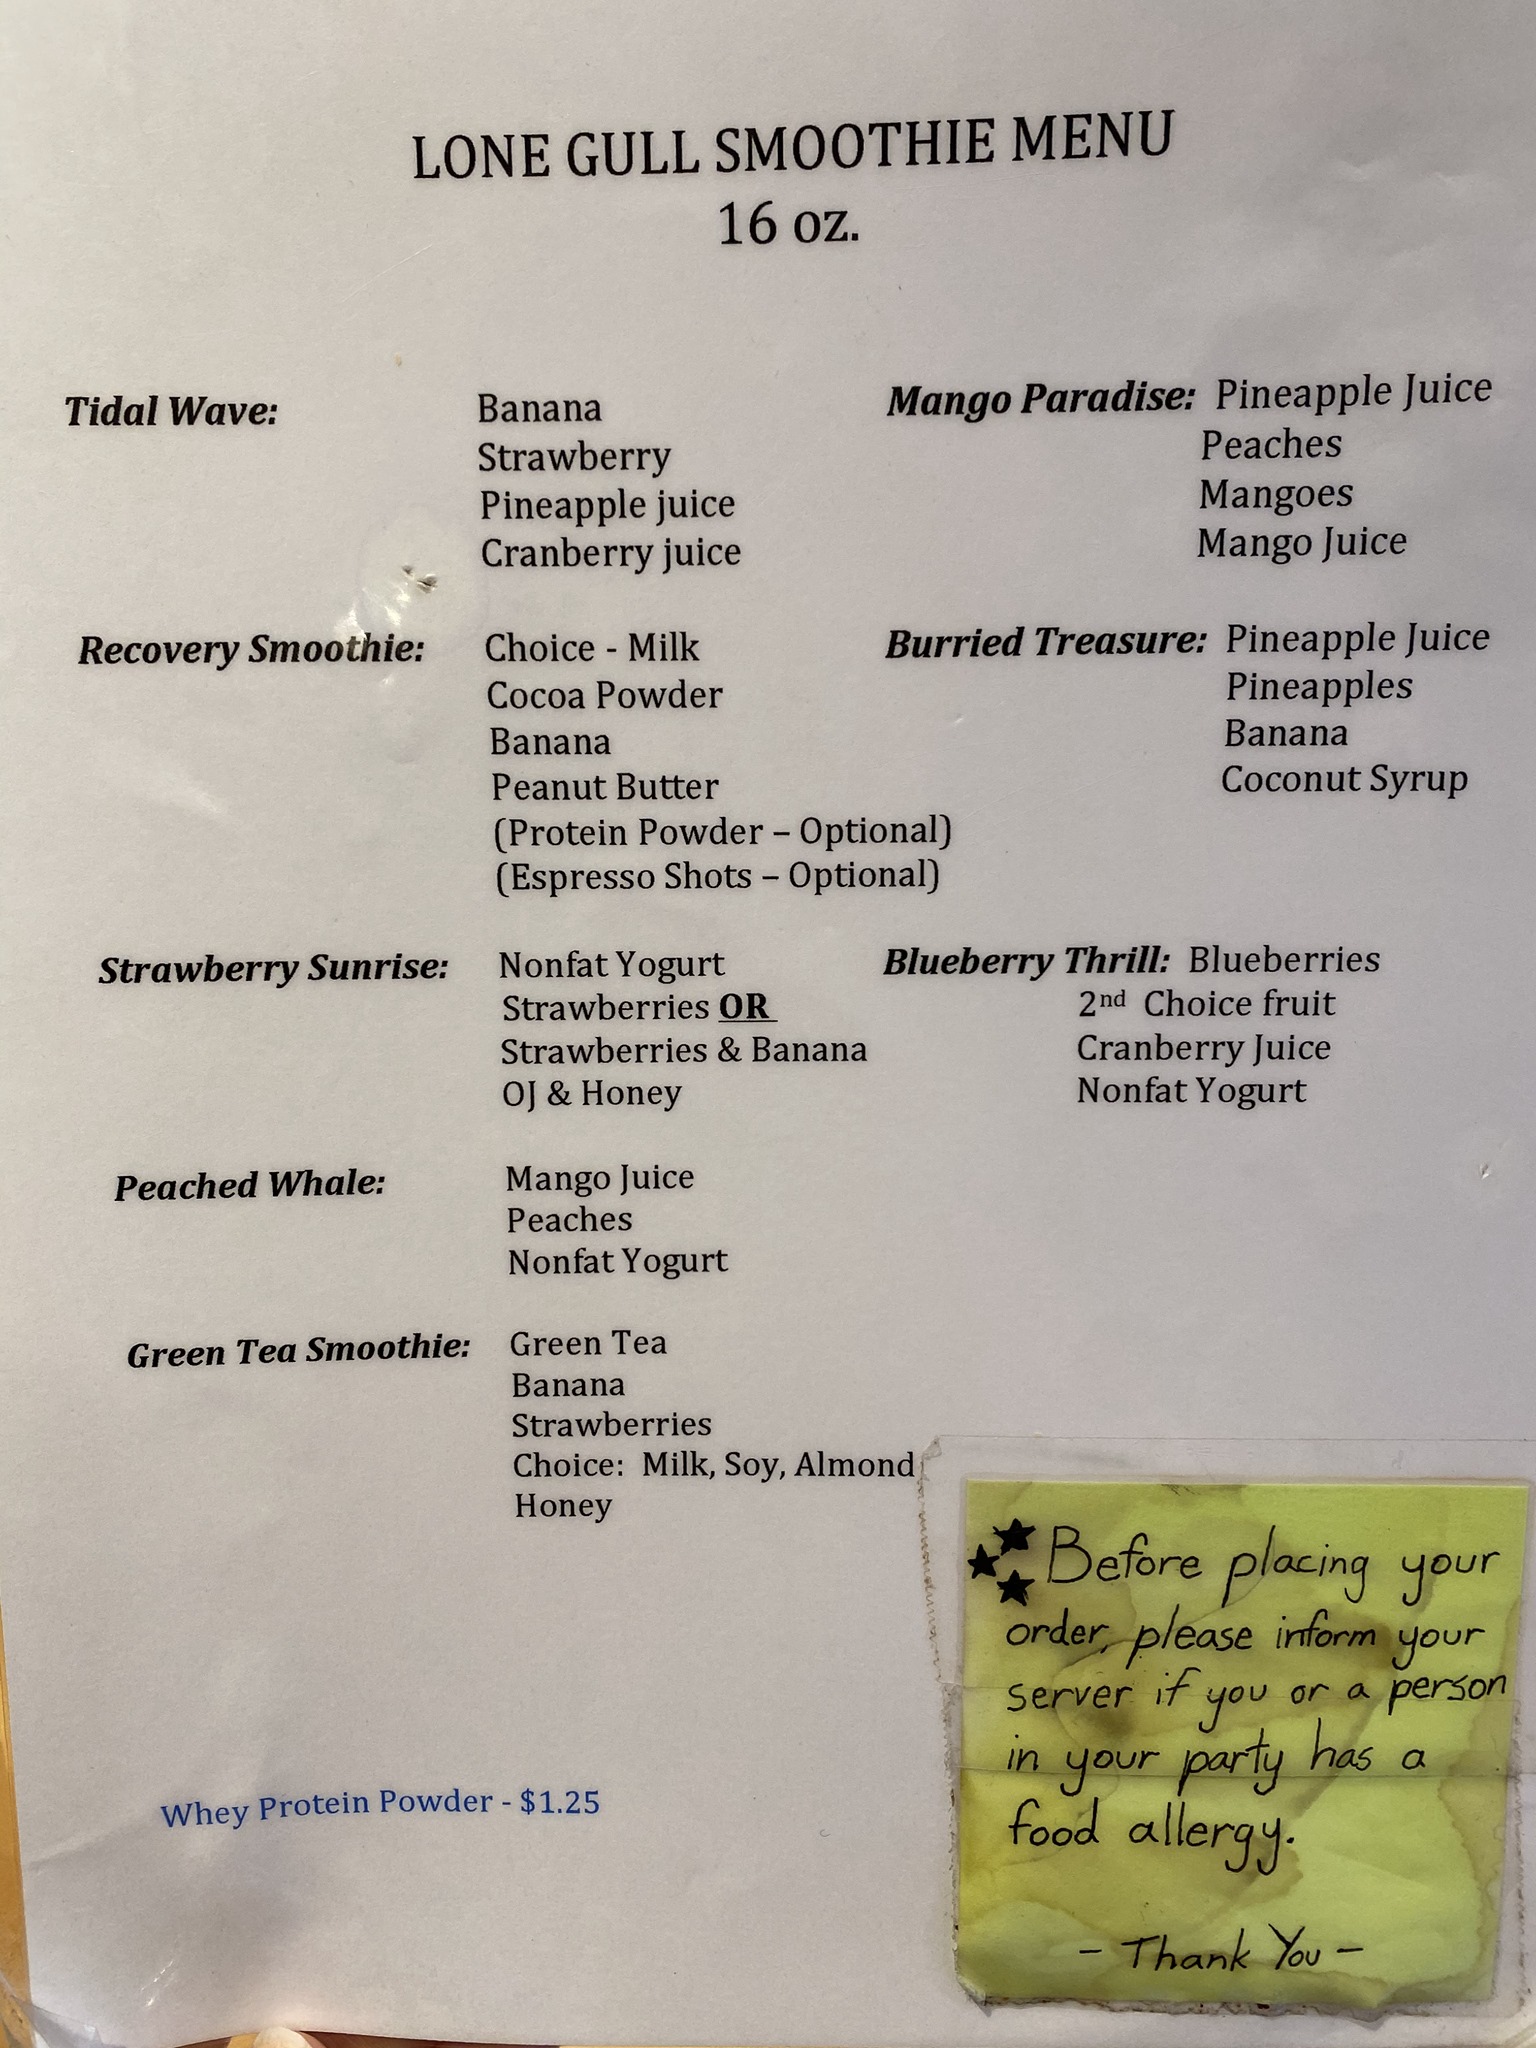 LONE GULL SMOOTHIE MENU
16 oz.
Tidal Wave: Banana
Strawberry
Pineapple juice
Cranberry juice
Recovery Smoothie: Choice - Milk
Cocoa Powder
Banana
Peanut Butter
(Protein Powder – Optional)
(Espresso Shots – Optional)
Strawberry Sunrise: Nonfat Yogurt
Strawberries OR
Strawberries & Banana
OJ & Honey
Peached Whale: Mango Juice
Peaches
Nonfat Yogurt
Green Tea Smoothie: Green Tea
Banana
Strawberries
Choice: Milk, Soy, Almond
Honey
Mango Paradise: Pineapple Juice
Peaches
Mangoes
Mango Juice
Burried Treasure: Pineapple Juice
Pineapples
Banana
Coconut Syrup
Blueberry Thrill: Blueberries
2nd Choice fruit
Cranberry Juice
Nonfat Yogurt
Whey Protein Powder - $1.25
Before placing your
order, please inform your
server if you or a person
in your party has a
food allergy.
- Thank You -